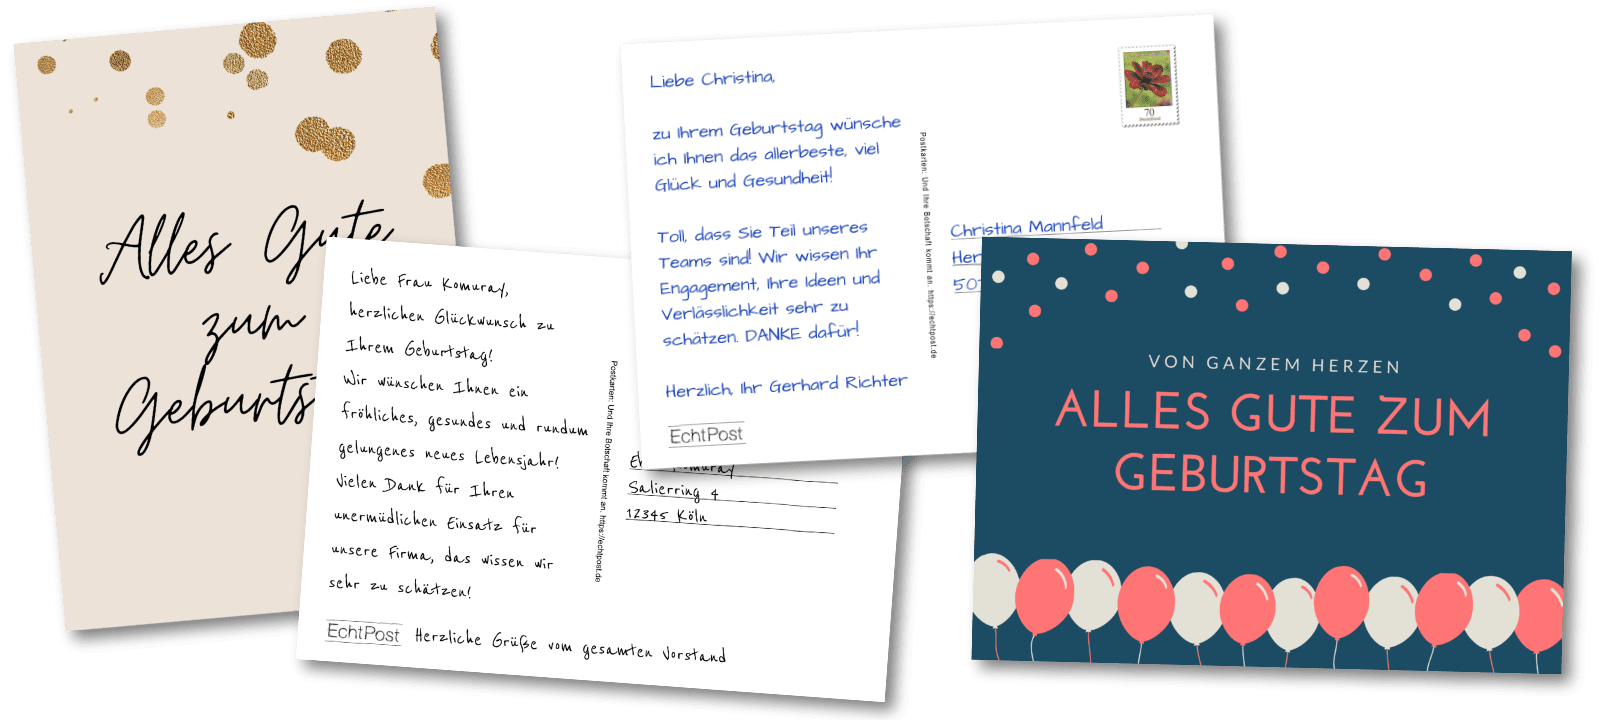 Alles Gute
zum
Liebe Frau Komuray,
herzlichen Glückwunsch zu
Ihrem Geburtstag!
Wir wünschen Ihnen ein
fröhliches, gesundes und rundum
gelungenes neues Lebensjahr!
Vielen Dank für Ihren
unermüdlichen Einsatz für
unsere Firma, das wissen wir
sehr zu schätzen!
EchtPost
Herzliche Grüße vom gesamten Vorstand
Postkarten: Und Ihre Botschaft kommt an. https://echtpost.de
Salierring 4
12345 Köln
Liebe Christina,
zu Ihrem Geburtstag wünsche
ich Ihnen das allerbeste, viel
Glück und Gesundheit!
Toll, dass Sie Teil unseres
Teams sind! Wir wissen Ihr
Engagement, Ihre Ideen und
Verlässlichkeit sehr zu
schätzen. DANKE dafür!
Herzlich, Ihr Gerhard Richter
EchtPost
Postkarten: Und Ihre Botschaft kommt an. https://echtpost.de
70
Deutschland
Christina Mannfeld
VON GANZEM HERZEN
ALLES GUTE ZUM
GEBURTSTAG